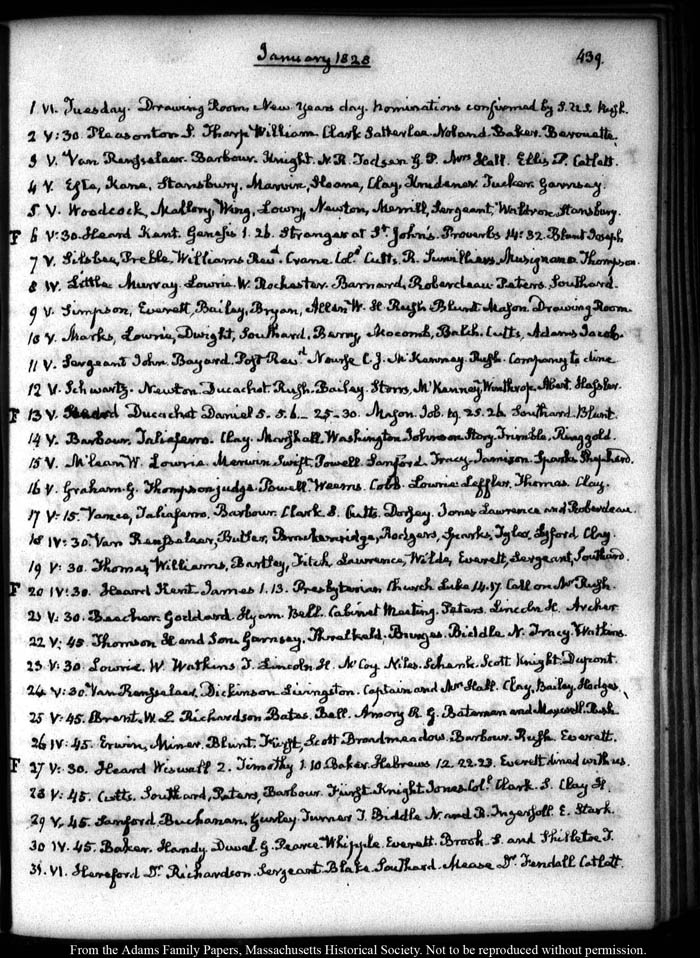 January 1828
439.
1 VI. Tuesday. Drawing Room. New Years day. Nominations confirmed by S.U.S. Rush.
2 V:30. Pleasonton S. Tharp William. Clark Satterlee Noland. Baker.
3 V. Van Rensselaer. Barbour. Knight. N.R. G.P. Mrs Hall. Ellis P. Catlett.
4 V. Este, Kane, Stansbury, Marvin, Sloane, Clay, Krudener Tucker. Garnsey.
5 V. Woodcock, Mallory, Wing, Lowry, Newton, Merrill, Sergeant, Waldron, Stansbury.
F 6 V:30. Heard Kent. Genesis 1. 26. Stranger at St. John's. Proverbs 14:32. Blunt Joseph
7 V. Silsbee, Preble, Williams Revd. Crane Coll. Cutts, R. Survilliers, Musignano Thompson.
8 IV. Little Murray. Lowrie W. Rochester. Barnard, Roberdeau Peters, Southard.
9 V. Simpson, Everett, Bailey, Bryan, Allen W. H. Rush Blunt Mason. Drawing Room
10 V. Marks, Lowrie, Dwight, Southard, Barry, Macomb, Balch. Cutts, Adams Jacob.
11 V. Sergeant John. Bayard. Post Revd. Nourse C.J. McKenney. Rush. Company to dine
12 V. Schwartz. Newton. Ducachet. Rush. Bailey. Storrs, McKenney, Winthrop, Abert. Hassler.
F 13 V. Heard Ducachet Daniel 5. 5. 6 – 25–30. Mason. Job. 19. 25. 26. Southard. Blunt.
14 V. Barbour. Taliaferro. Clay. Marshall. Washington Johnson Story. Trimble, Ringgold.
15 V. M'lean W. Lowrie. Merwin. Swift. Powell. Sanford. Tracy. Jamison. Sparks Shepherd.
16 V. Graham. G. Thompson judge. Powell. Weems. Cobb. Lowrie Leffler, Thomas. Clay.
17 V:15. Vance, Taliaferro. Barbour. Clark S. Cutts. Dorsey. Jones Lawrence and Roberdeau.
18 IV:30. Van Rensselaer, Butler, Brackenridge, Rodgers, Sparks, Tyler, Lyford Clay.
19 V:30. Thomas, Williams, Bartley, Fitch, Lawrence, Wilde, Everett, Sergeant, Southard.
F 20 IV:30. Heard Kent. James 1. 13. Presbyterian Church Luke 14. 17. Call on Mr Rush.
21 V:30. Beecher. Goddard. Hyam. Bell. Cabinet Meeting. Peters. Lincoln H. Archer
22 V:45. Thomson H and Son. Garnsey. Threlkeld. Burges. Biddle N. Tracy. Watkins.
23 V:30. Lowrie. W. Watkins T. Lincoln H. McCoy. Niles. Schenk. Scott. Knight. Dupont.
24 V:30. Van Rensselaer. Dickinson. Livingston. Captain and Mrs Hall. Clay, Bailey, Hodges.
25 V:45. Brent. W. L. Richardson. Bates. Bell. Among R. G. Bateman and Maxwell. Rush
26 IV:45. Erwin, Miner. Blunt. Furst, Scott. Broadmeadow. Barbour. Rush. Everett.
F 27 V:30. Heard Wiswall 2. Timothy 1. 10. Baker. Hebrews 12. 22. 23. Everett dined with us.
28 V:45. Cutts. Southard, Peters, Barbour. Furst. Knight. Jones Coll. Clark. S. Clay H.
29 V:45. Sanford, Buchanan. Gurley. Turner. T. Biddle N. and R. Ingersoll. E. Stark.
30 IV:45. Baker. Handy. Duvel. G. Pearce. Whipple. Everett. Brook. S. and Shillitoe T.
31. VI. Hereford Dr. Richardson. Sergeant. Blake. Southard. Mease Dr. Fendall Catlett.
From the Adams Family Papers, Massachusetts Historical Society. Not to be reproduced without permission.